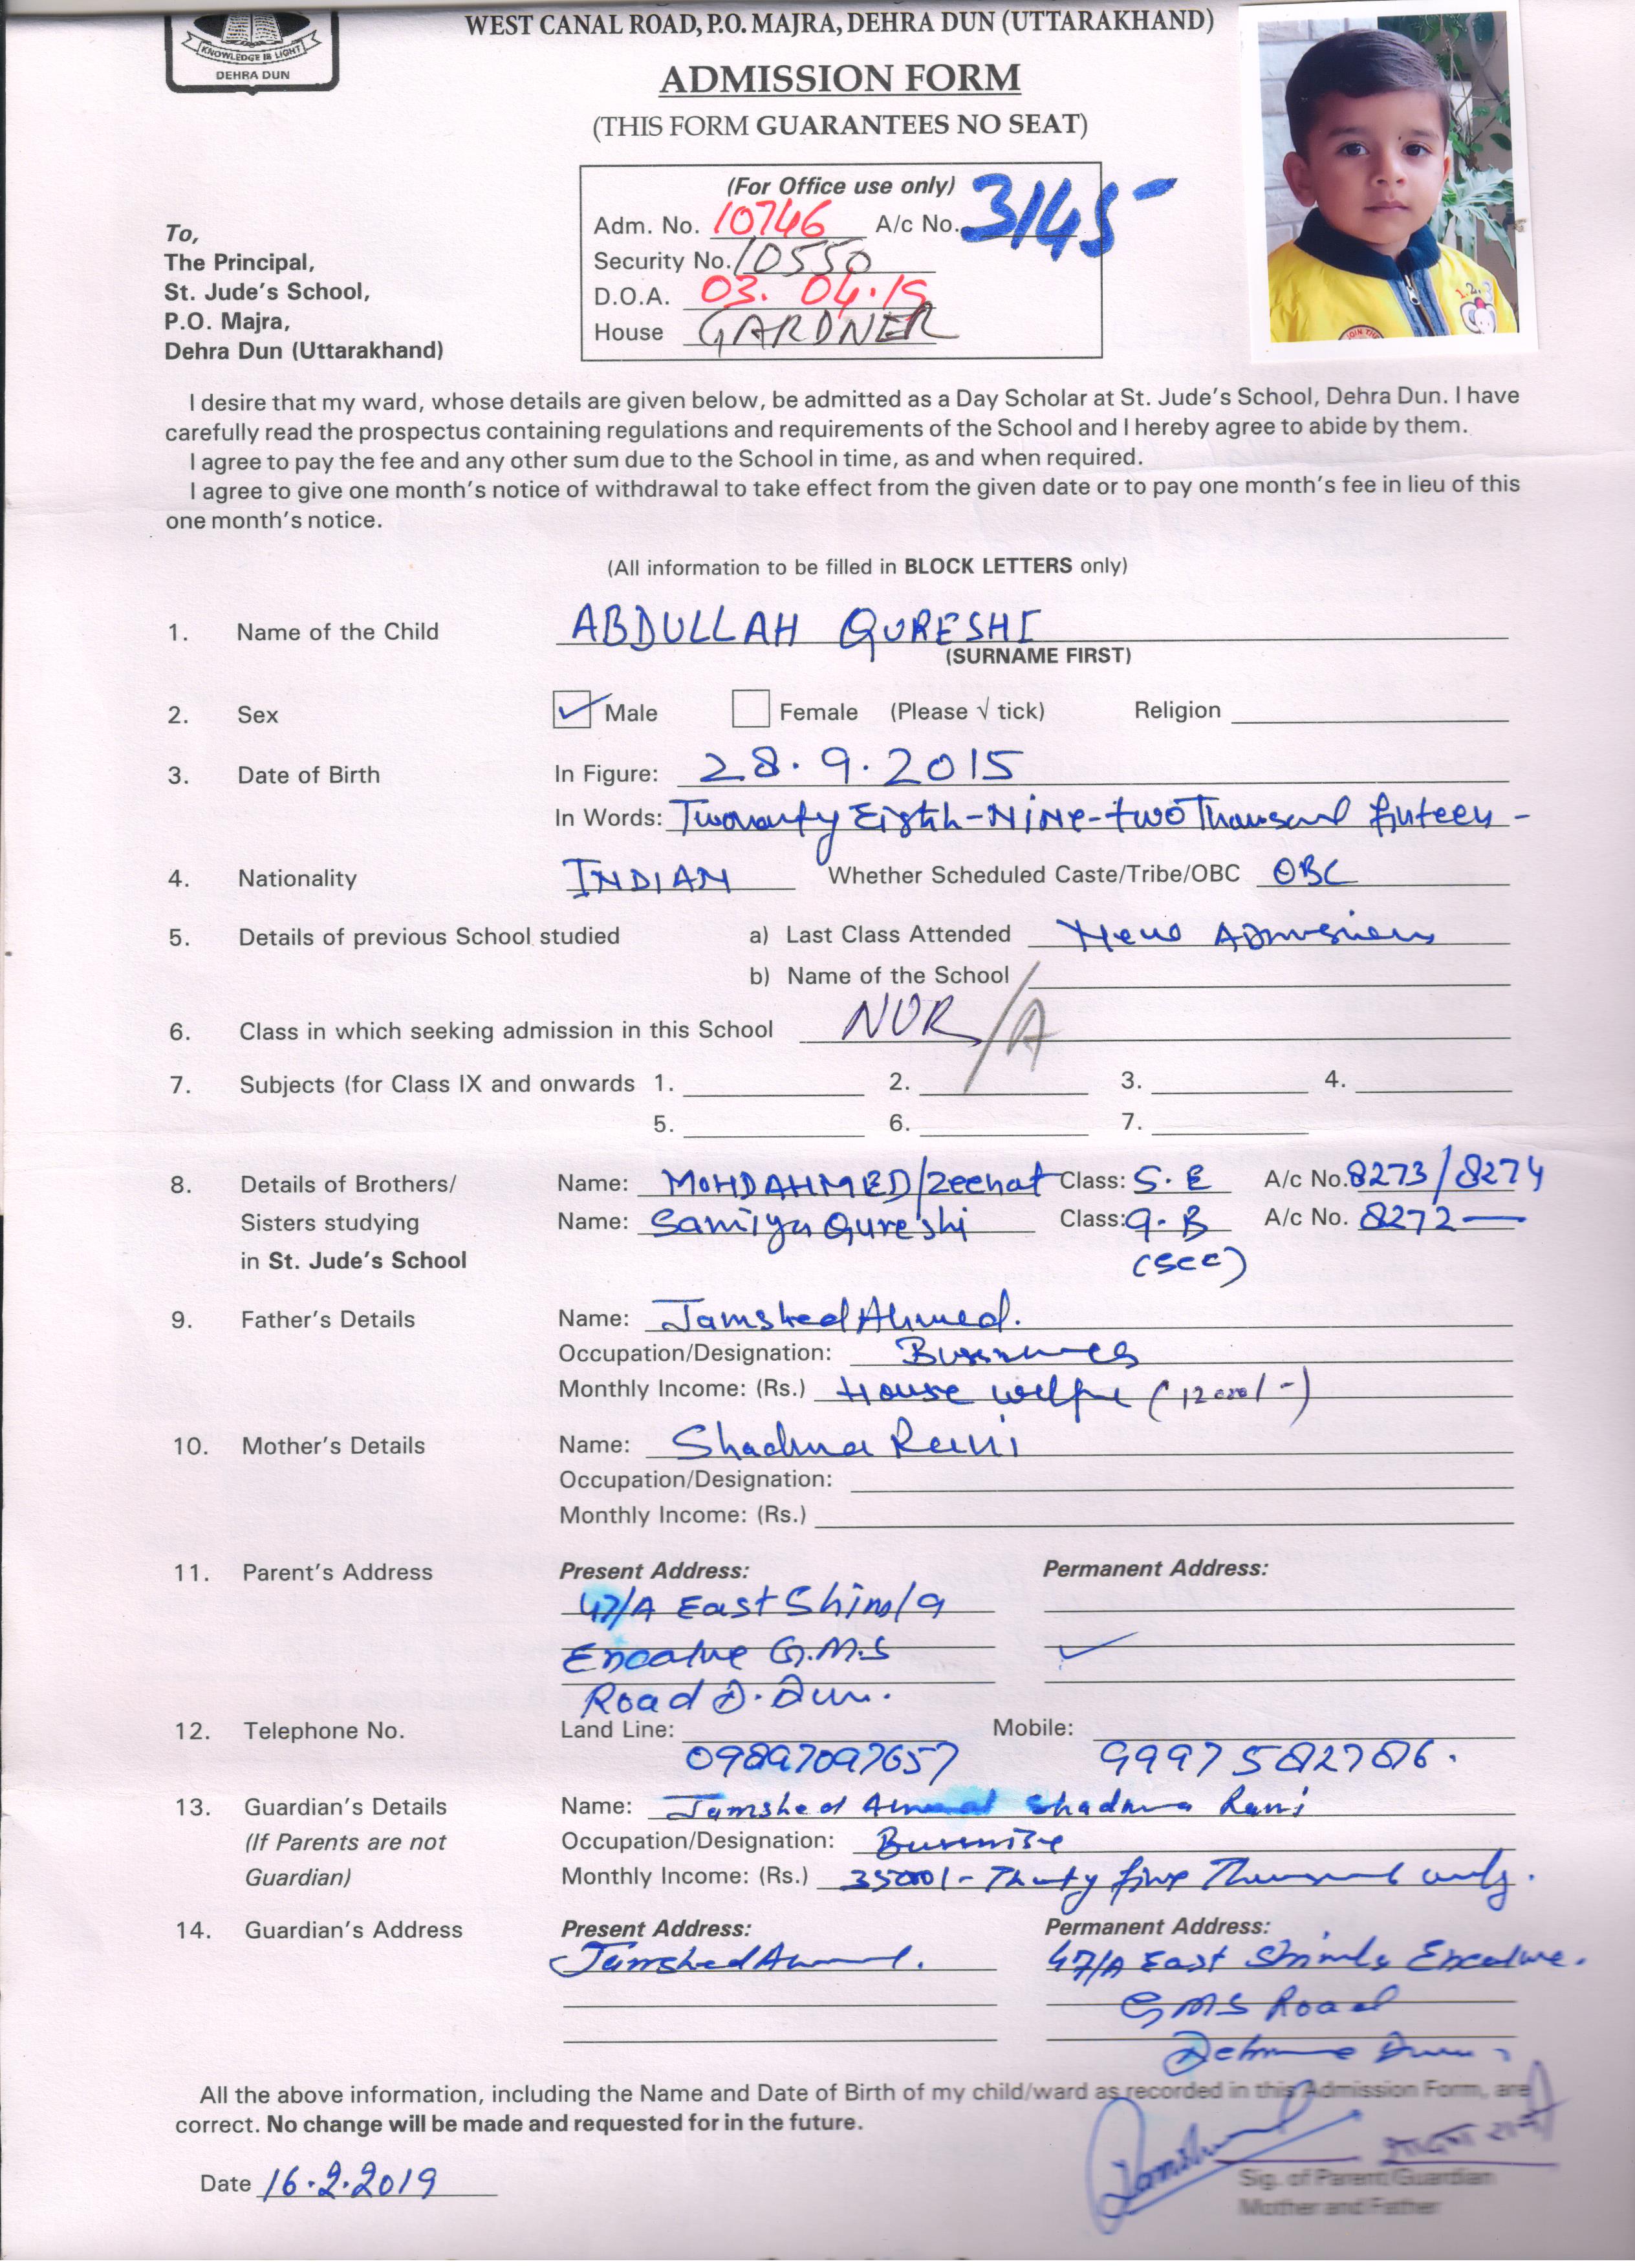 KNOWLEDGE IS LIGHT
DEHRA DUN
WEST CANAL ROAD, P.O. MAJRA, DEHRA DUN (UTTARAKHAND)
ADMISSION FORM
(THIS FORM GUARANTEES NO SEAT)
(For Office use only)
Adm. No. 10746 A/c No. 3145
Security No. 10550
D.O.A. 03. 04.19
House GARDNER
To,
The Principal,
St. Jude's School,
P.O. Majra,
Dehra Dun (Uttarakhand)
I desire that my ward, whose details are given below, be admitted as a Day Scholar at St. Jude's School, Dehra Dun. I have
carefully read the prospectus containing regulations and requirements of the School and I hereby agree to abide by them.
I agree to pay the fee and any other sum due to the School in time, as and when required.
I agree to give one month's notice of withdrawal to take effect from the given date or to pay one month's fee in lieu of this
one month's notice.
(All information to be filled in BLOCK LETTERS only)
1. Name of the Child ABDULLAH QURESHI
(SURNAME FIRST)
2. Sex ✓ Male Female (Please √ tick) Religion
3. Date of Birth In Figure: 28.9.2015
In Words: Eighth-Nine-two Thousand
4. Nationality INDIAN Whether Scheduled Caste/Tribe/OBC OBC
5. Details of previous School studied a) Last Class Attended New
b) Name of the School
6. Class in which seeking admission in this School NUR/A
7. Subjects (for Class IX and onwards 1. 2. 3. 4.
5. 6. 7.
8. Details of Brothers/ Name: MOHD AHMED/Zeenat Class: 5.E A/c No. 8273/8274
Sisters studying Name: Samiya Qureshi Class: 9-B A/c No. 8272
in St. Jude's School (SCC)
9. Father's Details Name: Jamshed Ahmed.
Occupation/Designation:
Monthly Income: (Rs.) House (12000/-)
10. Mother's Details Name: Shadma Rani
Occupation/Designation:
Monthly Income: (Rs.)
11. Parent's Address Present Address: Permanent Address:
47/A East Shimla
Encalve G.M.S ✓
Road D. Dun.
12. Telephone No. Land Line: Mobile:
09897097657 9997582786.
13. Guardian's Details Name: Jamshed Shadma Rani
(If Parents are not Occupation/Designation:
Guardian) Monthly Income: (Rs.) 35000/- Thirty five Thousand only.
14. Guardian's Address Present Address: Permanent Address:
Jamshed 47/A East Shimla Encalve.
GMS Road
Dun
All the above information, including the Name and Date of Birth of my child/ward as recorded in this Admission Form, are
correct. No change will be made and requested for in the future.
Date 16.2.2019
Sig. of Parent/Guardian
Mother and Father